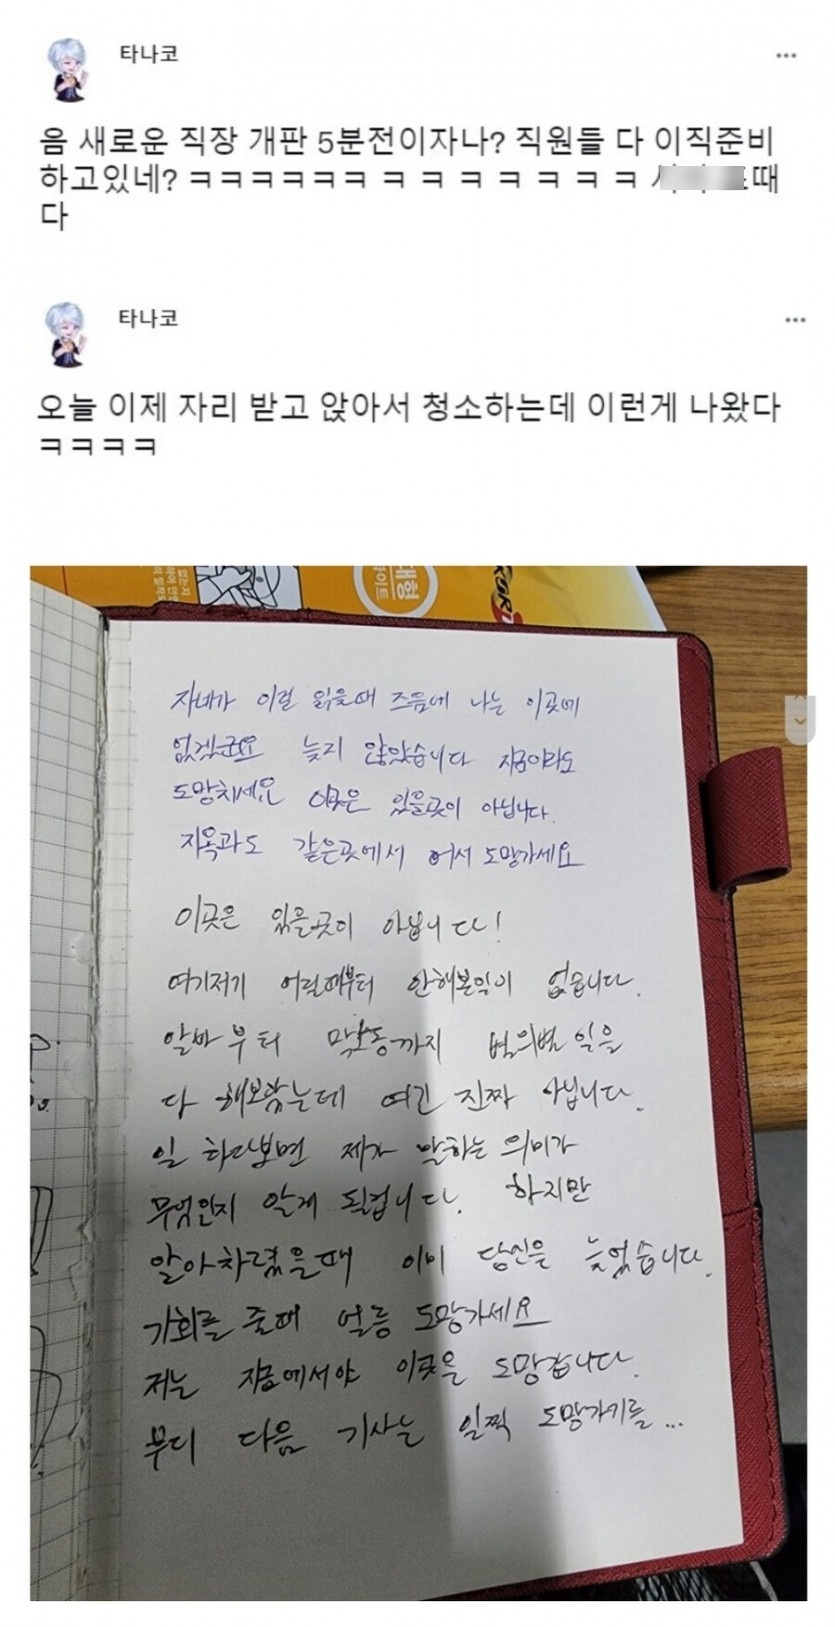 타나코
음 새로운 직장 개판 5분전이자나? 직원들 다 이직준비
하고있네? ㅋㅋㅋㅋㅋㅋㅋ ㅋ ㅋ ㅋ ㅋ ㅋ ㅋ ㅋ 때
다
타나코
오늘 이제 자리 받고 앉아서 청소하는데 이런게 나왔다
ㅋㅋㅋㅋ
자네가 이걸 읽을때 즈음에 나는 이곳에
없겠군요 늦지 않았습니다 지금이라도
도망치세요 이곳은 있을곳이 아닙니다.
지옥과도 같은곳에서 어서 도망가세요
이곳은 있을곳이 아닙니다!
여기저기 어릴때부터 안해본일이 없습니다.
알바부터 막노동까지 별의별 일을
다 해보았는데 여긴 진짜 아닙니다.
일 하다보면 제가 말하는 의미가
무엇인지 알게 될겁니다. 하지만
알아차렸을때 이미 당신은 늦었습니다.
기회를 줄때 얼릉 도망가세요
저는 지금에서야 이곳을 도망갑니다.
부디 다음 기사는 일찍 도망가기를...